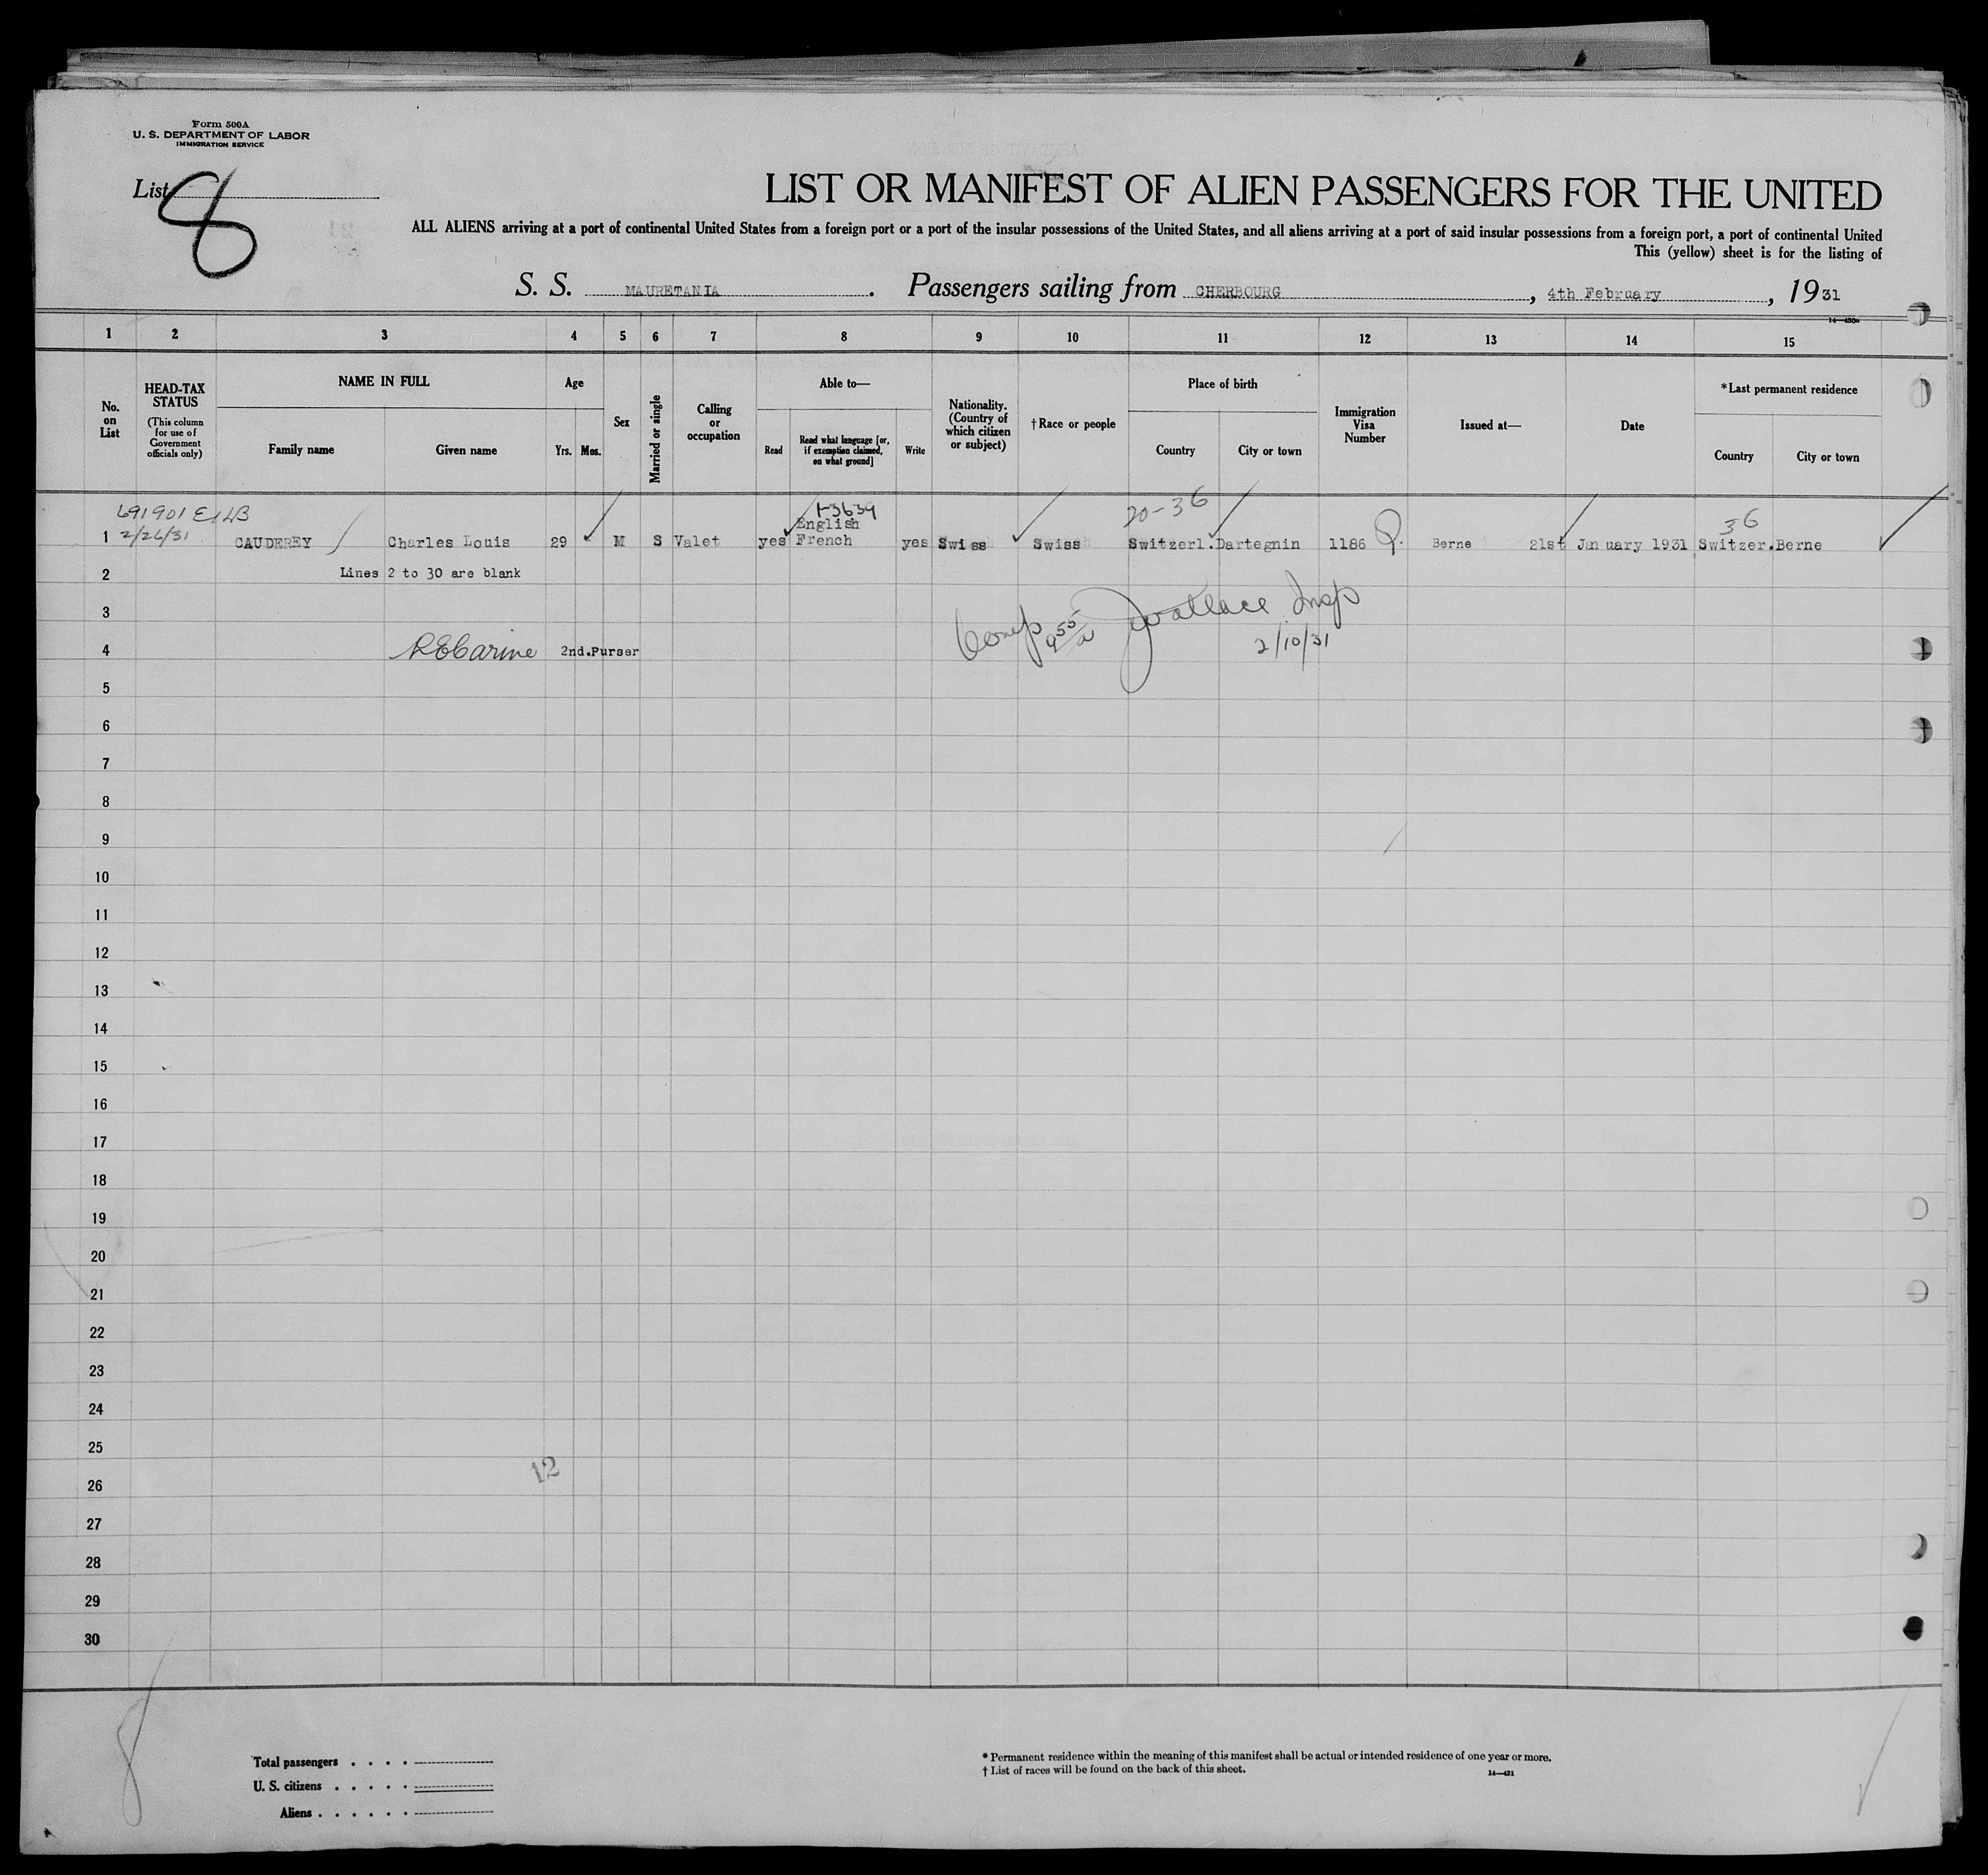 Form 500A
U. S. DEPARTMENT OF LABOR
IMMIGRATION SERVICE
List 8
LIST OR MANIFEST OF ALIEN PASSENGERS FOR THE UNITED
ALL ALIENS arriving at a port of continental United States from a foreign port or a port of the insular possessions of the United States, and all aliens arriving at a port of said insular possessions from a foreign port, a port of continental United
This (yellow) sheet is for the listing of
S. S. MAURETANIA . Passengers sailing from CHERBOURG , 4th February , 1931
1 2 3 4 5 6 7 8 9 10 11 12 13 14 15
No. on List
HEAD-TAX STATUS
(This column for use of Government officials only)
NAME IN FULL
Family name
Given name
Age
Yrs.
Mos.
Sex
Married or single
Calling or occupation
Able to—
Read
Read what language [or, if exemption claimed, on what ground]
Write
Nationality. (Country of which citizen or subject)
†Race or people
Place of birth
Country
City or town
Immigration Visa Number
Issued at—
Date
*Last permanent residence
Country
City or town
691901
1-3639
20-36
36
2/26/31
English
1 CAUDEREY Charles Louis 29 M S Valet yes French yes Swiss Swiss Switzerl. Dartegnin 1186 Berne 21st January 1931 Switzer. Berne
2 Lines 2 to 30 are blank
3 Wallace Insp
4 2nd.Purser Comp 9 55/a 2/10/31
5
6
7
8
9
10
11
12
13
14
15
16
17
18
19
20
21
22
23
24
25
12
26
27
28
29
30
8
Total passengers . . . .
U. S. citizens . . . . .
Aliens . . . . . .
* Permanent residence within the meaning of this manifest shall be actual or intended residence of one year or more.
† List of races will be found on the back of this sheet.
14—431